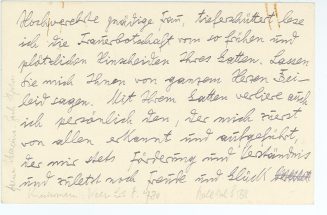 Hochverehrte gnädige Frau, tieferschüttert lese
ich die Trauerbotschaft vom so frühen und
plötzlichen Hinscheiden Ihres Gatten. Lassen
Sie mich Ihnen von ganzem Herzen Bei-
leid sagen. Mit Ihrem Gatten verliere auch
ich persönlich den, der mich zuerst
von allen erkannt und aufgeführt,
der mir stets Förderung und Verständnis
und zuletzt noch Freude und Glück